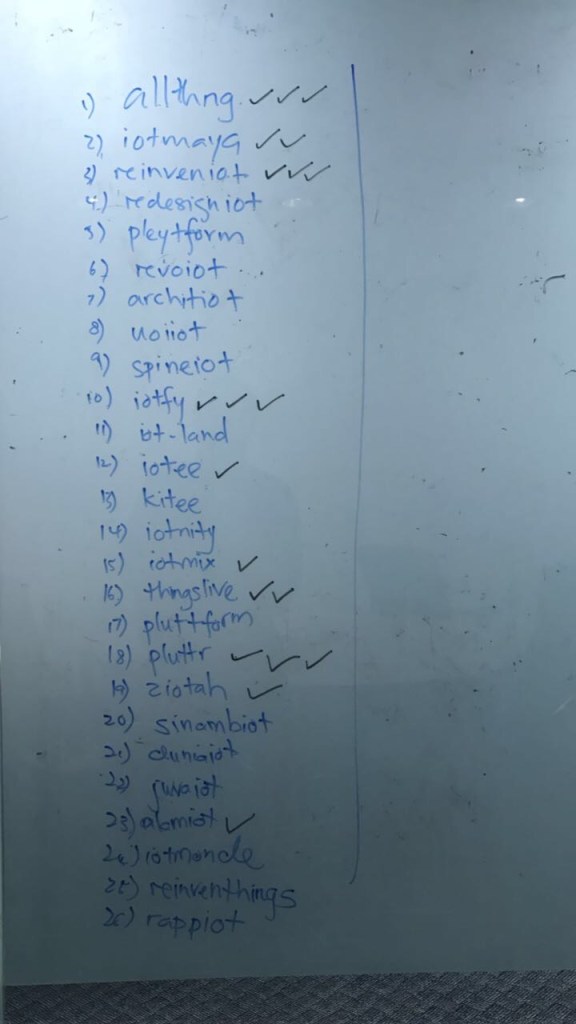 1) allthng ✓✓✓
2) iotmaya ✓✓
3) reinveniot ✓✓✓
4) redesigniot
5) pleytform
6) revoiot
7) architiot
8) uoiiot
9) spineiot
10) iotfy ✓✓✓
11) iot-land
12) iotee ✓
13) kitee
14) iotnity
15) iotmix ✓
16) thngslive ✓✓
17) pluttform
18) pluttr ✓✓✓
19) ziotah ✓
20) sinambiot
21) duniaiot
22)
23) atomiot ✓
24) iotmonde
25) reinventhings
26) rappiot